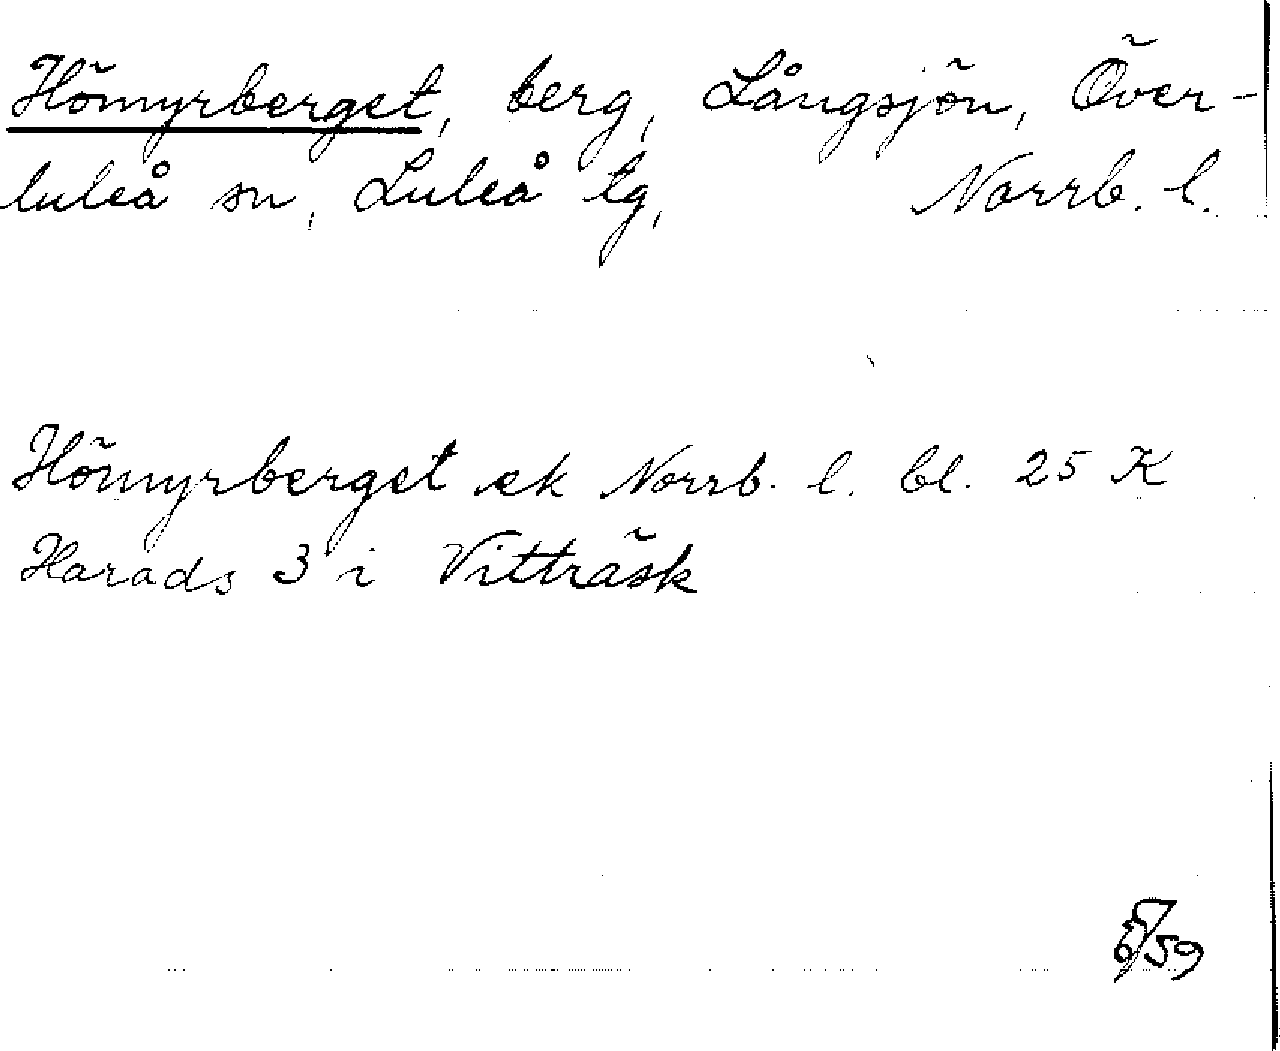 Hömyrberget, berg, Långsjön, Över-
luleå sn, Luleå tg, Norrb. l.
Hömyrberget ek Norrb. l. bl. 25 K
Harads 3 i Vitträsk
5/59